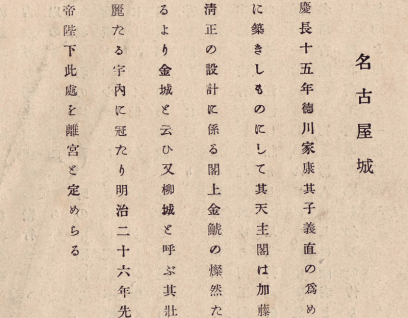 名古屋城
慶長十五年徳川家康其子義直の爲め
に築きしものにして其天主閣は加藤
淸正の設計に係る閣上金鯱の燦然た
るより金城と云ひ又柳城と呼ぶ其壯
麗たる宇內に冠たり明治二十六年先
帝陛下此處を離宮と定めらる